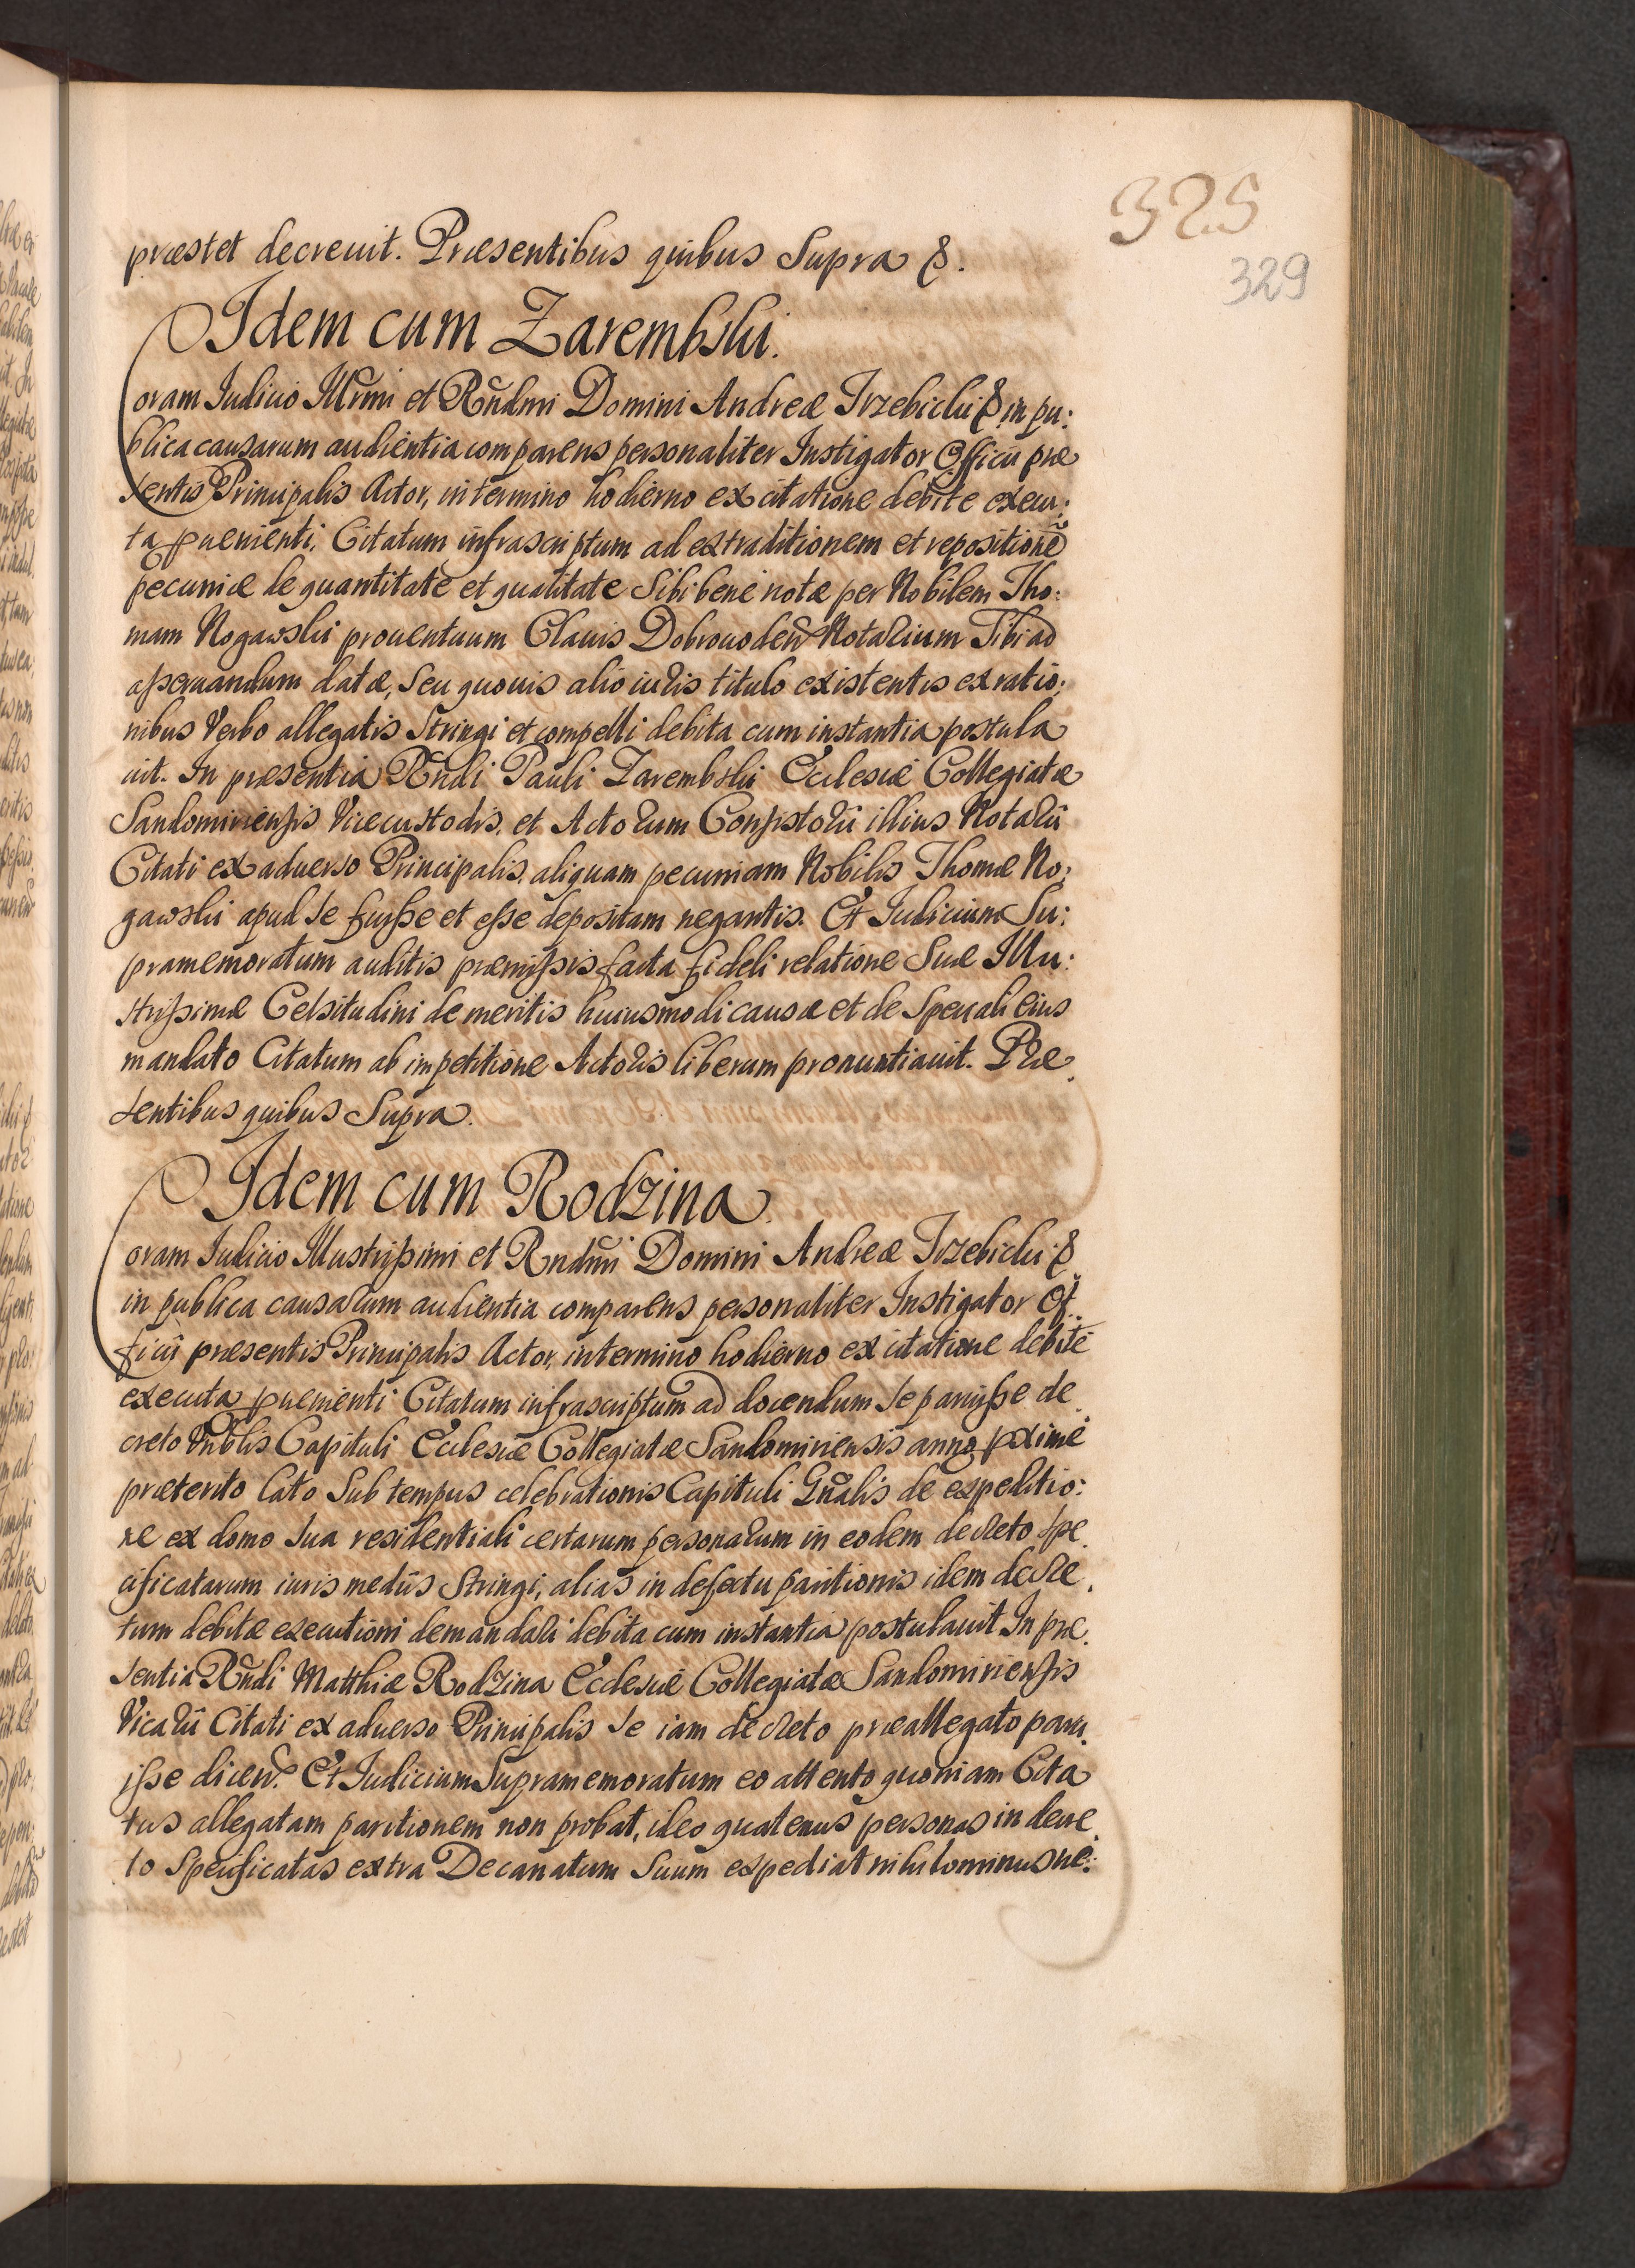 325
329
præstet decreuit. Præsentibus quibus Supra &.
Idem cum Zarembski.
Coram Iudicio Illrmi et Rndmi Domini Andreæ Trzebicki & in pu:
blica causarum audientia comparens personaliter Instigator Officii præ
sentis Principalis Actor, in termino hodierno ex citatione debite execu:
ta puenienti, Citatum infrascriptum ad extraditionem et repositionē
pecuniæ de quantitate et qualitate Sibi bene notæ per Nobilem Tho:
mam Nogawski prouentuum Clauis Dobrowoden Notarium Tibi ad
asseruandum datæ, Seu quouis alio iuris titulo existentis ex ratio:
nibus Verbo allegatis Stringi et compelli debita cum instantia postula
uit. In præsentia Rndi Pauli Zarembski Ecclesiæ Collegiatæ
Sandomiriensis Vicecustodis, et Actorum Consistorii illius Notarii
Citati ex aduerso Principalis, aliquam pecuniam Nobilis Thomæ No:
gawski apud Se fuisse et esse depositam negantis. Et Iudicium Su:
pramemoratum auditis præmissis facta fideli relatione Suæ Illu:
strissimæ Celsitudini de meritis huiusmodi causæ et de Speciali eius
mandato Citatum ab impetitione Actoris liberum pronuntiauit. Præ
sentibus quibus Supra.
Idem cum Rodzina.
Coram Iudicio Illustrissimi et Rndmi Domini Andreæ Trzebicki &
in publica causarum audientia comparens personaliter Instigator Of
ficii præsentis Principalis Actor, in termino hodierno ex citatione debite
executa puenienti Citatum infrascriptum ad docendum Se paruisse de
creto Vnblis Capituli Ecclesiæ Collegiatæ Sandomiriensis anno pxime
præterito lato Sub tempus celebrationis Capituli Gnalis de expeditio:
ne ex domo Sua residentiali certarum personarum in eodem decreto Spe
cificatarum iuris mediis Stringi, alias in defectu paritionis idem decre
tum debitæ executioni demandari debita cum instantia postulauit. In præ
sentia Rndi Matthiæ Rodzina Ecclesiæ Collegiatæ Sandomiriensis
Vicarii Citati ex aduerso Principalis Se iam decreto præallegato paru
isse dicen. Et Iudicium Supramemoratum eo attento quoniam Cita
tus allegatam paritionem non probat, ideo quatenus personas in decre
to Specificatas extra Decanatum Suum expediat nihilominus ne: